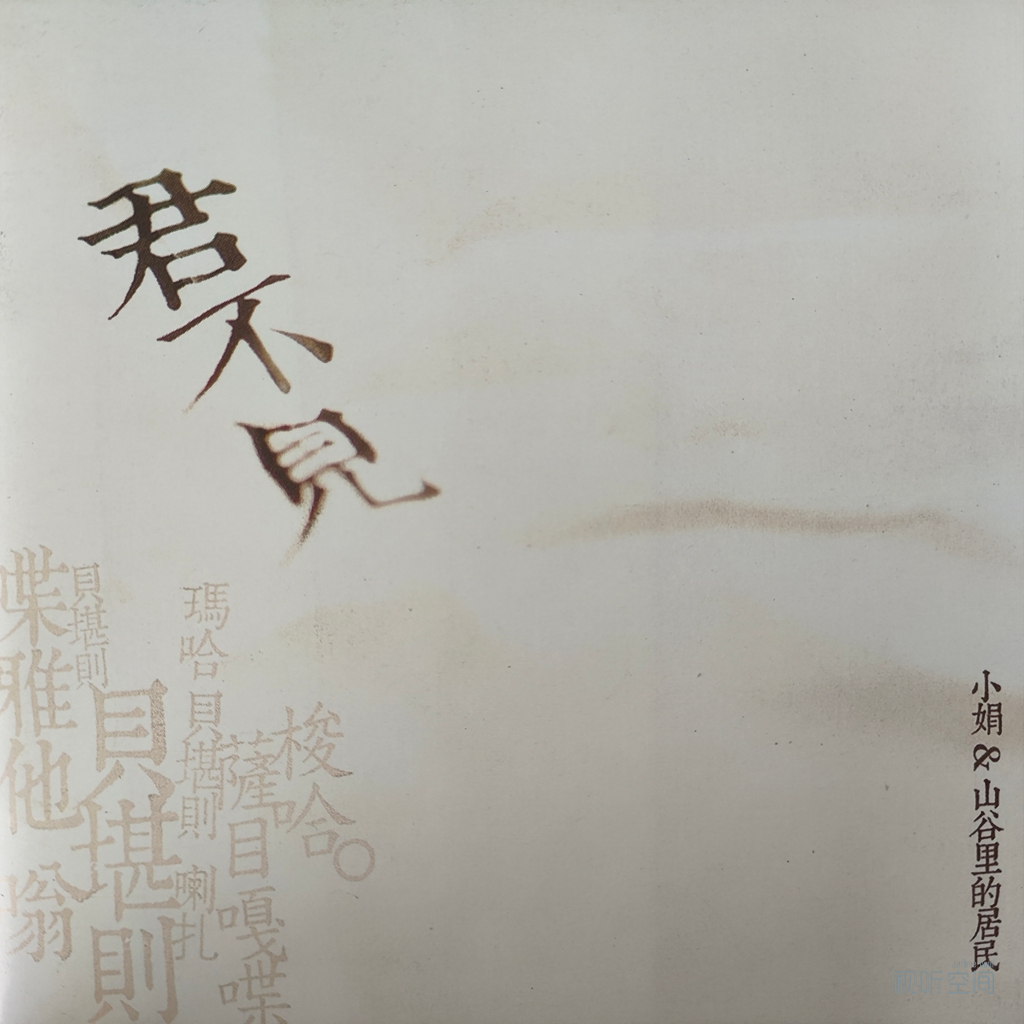 君不見
喋雅他 嗡
貝堪則
貝堪則
瑪哈貝堪則 喇扎
薩目嘎喋
梭哈。
小娟 & 山谷里的居民
视听空间